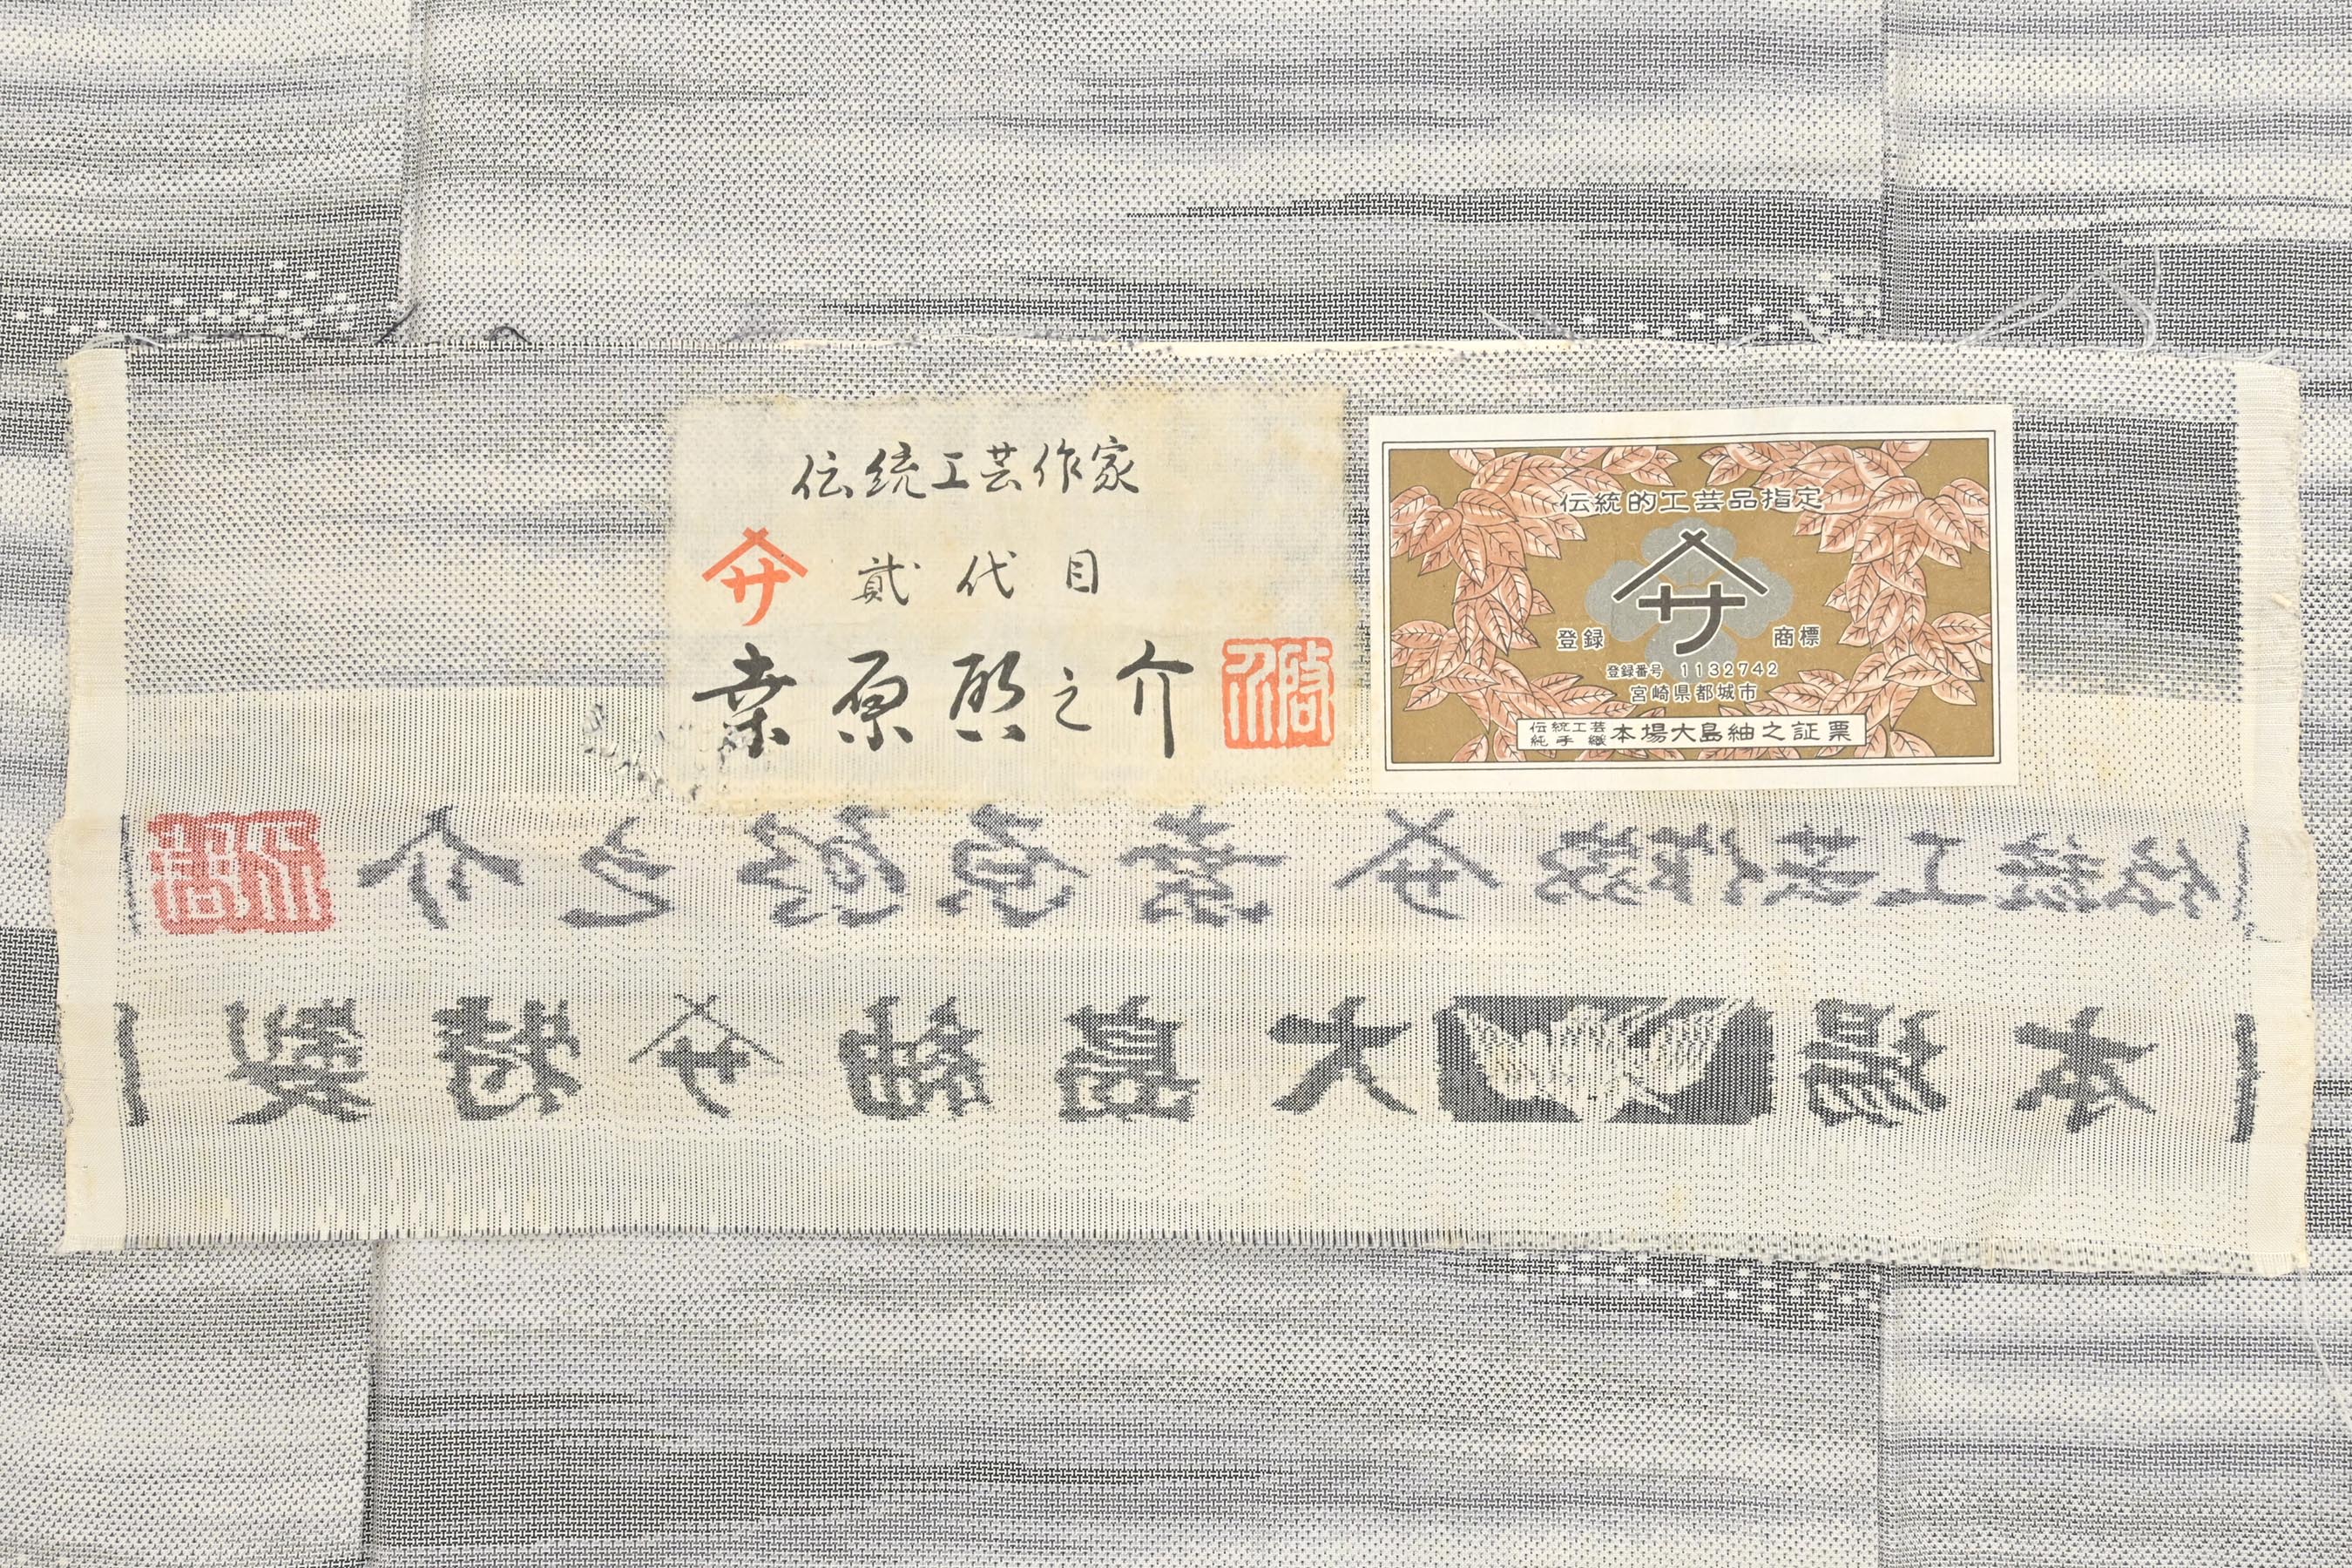 伝統工芸作家
サ 貳代目
桒原啓之介
伝統的工芸品指定
サ
登録 商標
登録番号 1132742
宮崎県都城市
伝統工芸
純手織
本場大島紬之証票
伝統工芸作家 サ 桒原啓之介
本場大島紬 サ 特製